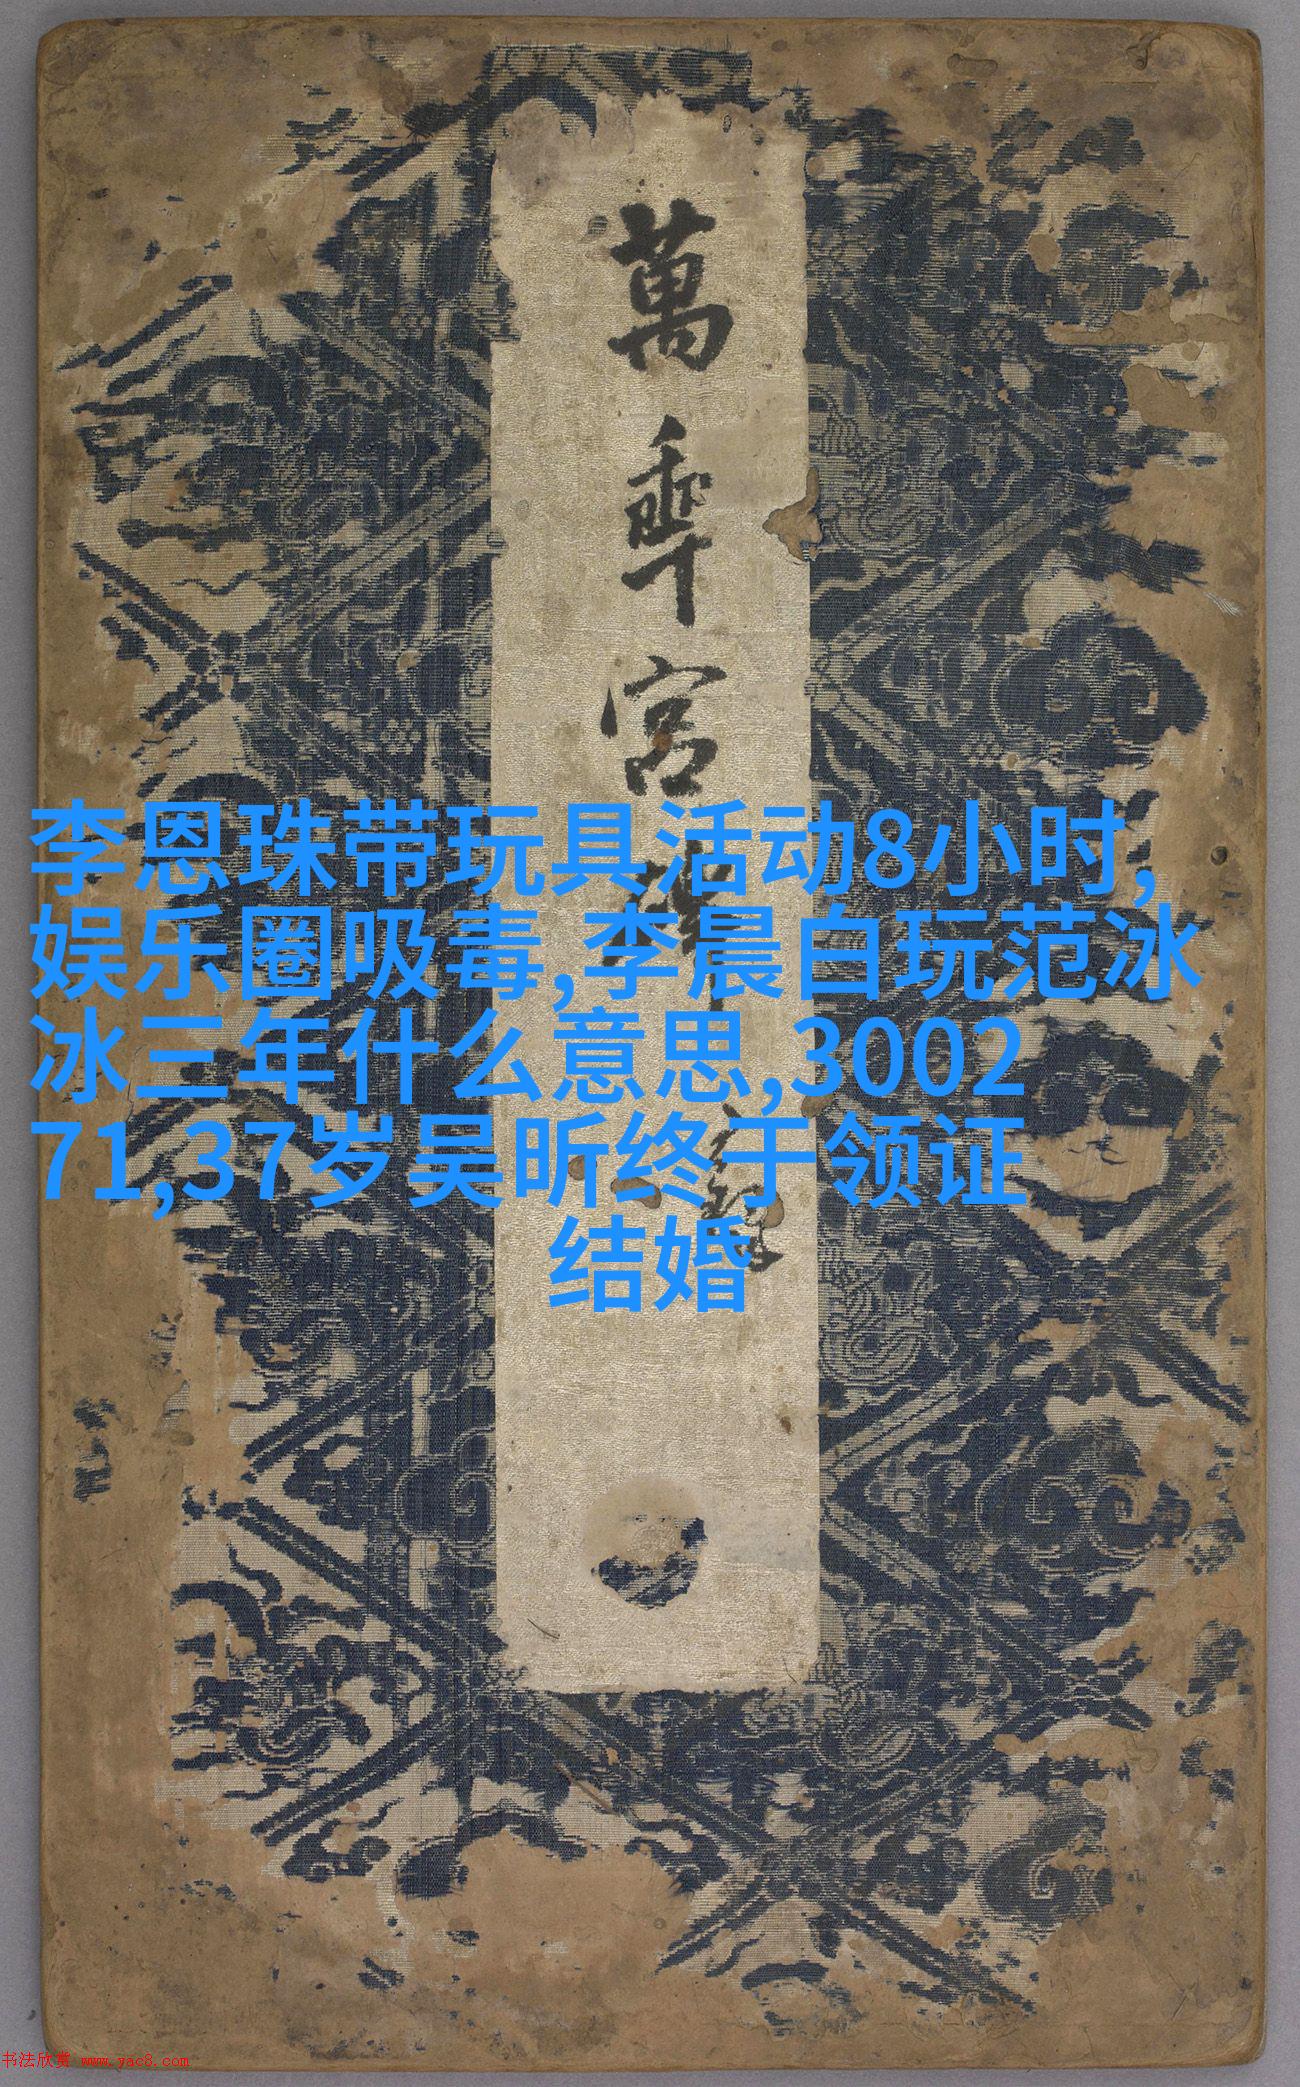 萬
乘
宫
李恩珠带玩具活动8小时,
娱乐圈吸毒,李晨白玩范冰
冰三年什么意思,3002
71,37岁吴昕终于领证
结婚
书法欣赏 www.yac8.com